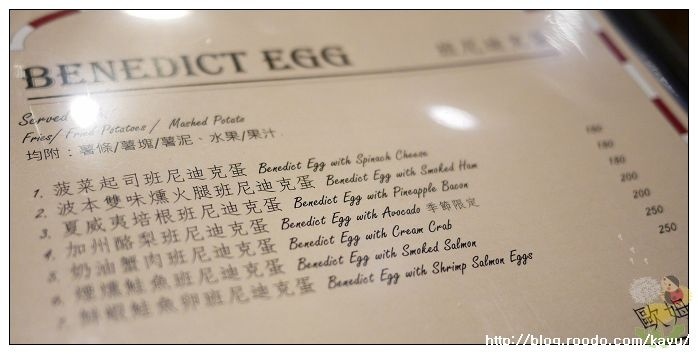 BENEDICT EGG 班尼迪克蛋
Served
Fries/ Fried Potatoes / Mashed Potato
均附：薯條/薯塊/薯泥、水果/果汁
1. 菠菜起司班尼迪克蛋 Benedict Egg with Spinach Cheese 180
2. 波本雙味燻火腿班尼迪克蛋 Benedict Egg with Smoked Ham 180
3. 夏威夷培根班尼迪克蛋 Benedict Egg with Pineapple Bacon 180
4. 加州酪梨班尼迪克蛋 Benedict Egg with Avocado 季節限定 200
5. 奶油蟹肉班尼迪克蛋 Benedict Egg with Cream Crab 200
6. 煙燻鮭魚班尼迪克蛋 Benedict Egg with Smoked Salmon 250
7. 鮮蝦鮭魚卵班尼迪克蛋 Benedict Egg with Shrimp Salmon Eggs 250
歐姆
http://blog.roodo.com/kayu/